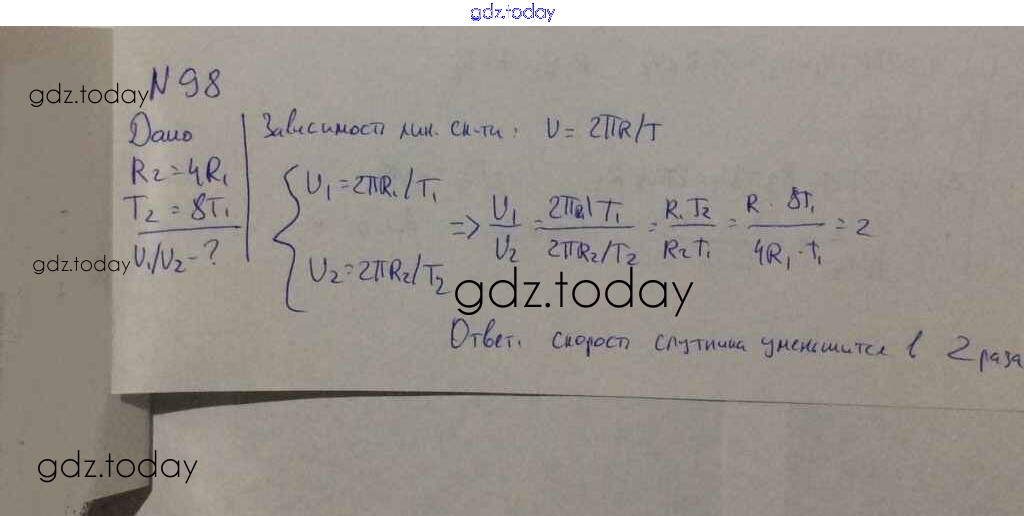 gdz.today
N 98
gdz.today
Дано
R₂ = 4R₁
T₂ = 8T₁
U₁/U₂ - ?
gdz.today
Зависимость лин. ск-ти: U = 2πR/T
U₁ = 2πR₁/T₁
U₂ = 2πR₂/T₂
=> U₁/U₂ = 2πR₁/T₁ / 2πR₂/T₂ = R₁T₂ / R₂T₁ = R · 8T₁ / 4R₁ · T₁ = 2
gdz.today
Ответ: скорость спутника уменьшится в 2 раза
gdz.today